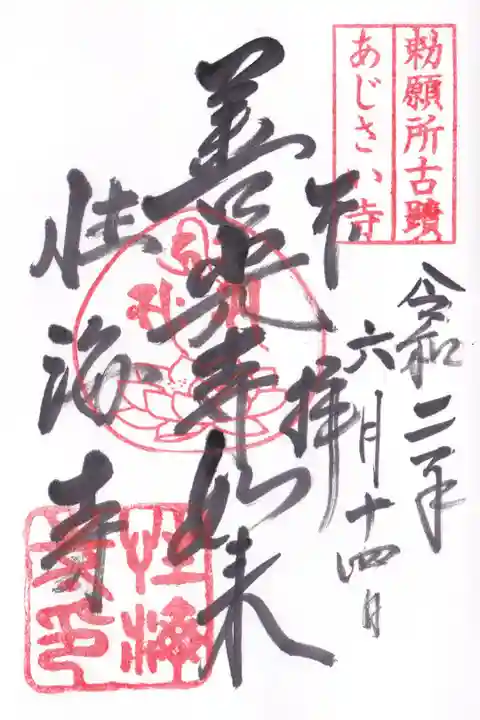 勅願所古蹟
あじさい寺
令和二年
六月十四日
奉拝
善光寺如来
性海寺
性海
寺印